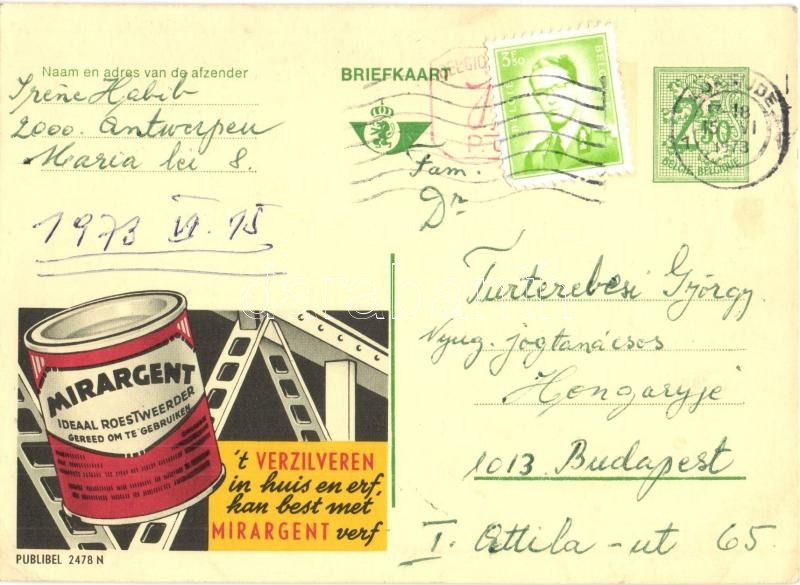 Naam en adres van de afzender
Irène Habib
2000. Antwerpen
Maria lei 8.
1973 VI. 15
BRIEFKAART
3F50
BELGIE
2.50
BELGIE-BELGIQUE
18
1973
Fam.
Dr
Turterebesi György
Nyug. jogtanácsos
Hongaryje
1013 Budapest
I. Attila-ut 65.
MIRARGENT
IDEAAL ROESTWEERDER
GEREED OM TE GEBRUIKEN
't VERZILVEREN
in huis en erf,
kan best met
MIRARGENT verf
PUBLIBEL 2478 N